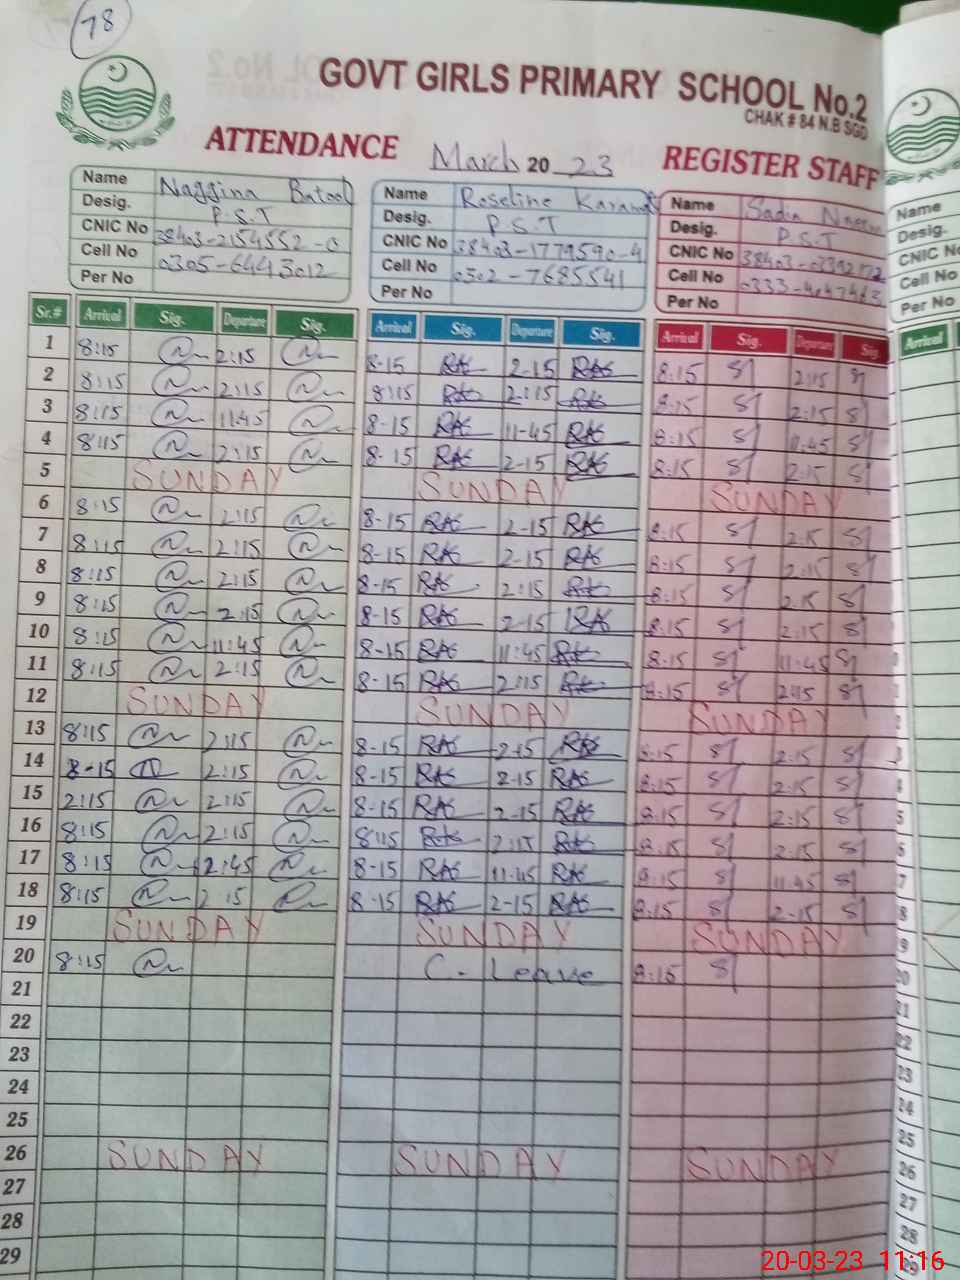 78
GOVT GIRLS PRIMARY SCHOOL No.2
CHAK # 84 N.B SGD
ATTENDANCE March 2023 REGISTER STAFF
Name Naggina Batool Name Roseline Karamat Name Sadia
Desig. P.S.T Desig. P.S.T Desig. P.S.T Name
CNIC No 38403-2154552-0 CNIC No 38403-1779590-4 CNIC No Desig.
Cell No 0305-6443012 Cell No 0302-7685541 Cell No CNIC No
Per No Per No Per No Cell No
Per No
Sr.# Arrival Sig. Departure Sig. Arrival Sig. Departure Sig. Arrival Sig. Departure Sig. Arrival
1 8:15 2:15 8-15 2-15 8:15 2:15
2 8:15 2:15 8:15 2:15 8:15 2:15
3 8:15 11:45 8-15 11-45 8:15 11:45
4 8:15 2:15 8-15 2-15 8:15 2:15
5 SUNDAY SUNDAY SUNDAY
6 8:15 2:15 8-15 2-15 8:15 2:15
7 8:15 2:15 8-15 2-15 8:15 2:15
8 8:15 2:15 8-15 2:15 8:15 2:15
9 8:15 2:15 8-15 2-15 8:15 2:15
10 8:15 11:45 8-15 11:45 8:15 11:45
11 8:15 2:15 8-15 2:15 8:15 2:15
12 SUNDAY SUNDAY SUNDAY
13 8:15 2:15 8-15 2-15 8:15 2:15
14 8-15 2:15 8-15 2-15 8:15 2:15
15 2:15 2:15 8-15 2-15 8:15 2:15
16 8:15 2:15 8:15 2:15 8:15 2:15
17 8:15 2:45 8-15 11:45 8:15 11:45
18 8:15 2:15 8-15 2-15 8:15 2-15
19 SUNDAY SUNDAY SUNDAY
20 8:15 C. Leave 8:15
21
22
23
24
25
26 SUNDAY SUNDAY SUNDAY
27
28
29
20-03-23 11:16